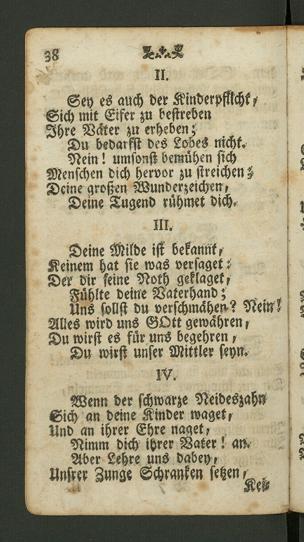 38
II.
Sey es auch der Kinderpflicht,
Sich mit Eifer zu bestreben
Ihre Väter zu erheben;
Du bedarfst des Lobes nicht.
Nein! umsonst bemühen sich
Menschen dich hervor zu streichen;
Deine großen Wunderzeichen,
Deine Tugend rühmet dich.
III.
Deine Milde ist bekannt,
Keinem hat sie was versaget:
Der dir seine Noth geklaget,
Fühlte deine Vaterhand;
Uns sollst du verschmähen? Nein!
Alles wird uns GOtt gewähren,
Du wirst es für uns begehren,
Du wirst unser Mittler seyn.
IV.
Wenn der schwarze Neideszahn
Sich an deine Kinder waget,
Und an ihrer Ehre naget,
Nimm dich ihrer Vater! an.
Aber Lehre uns dabey,
Unsrer Zunge Schranken setzen,
Kei-